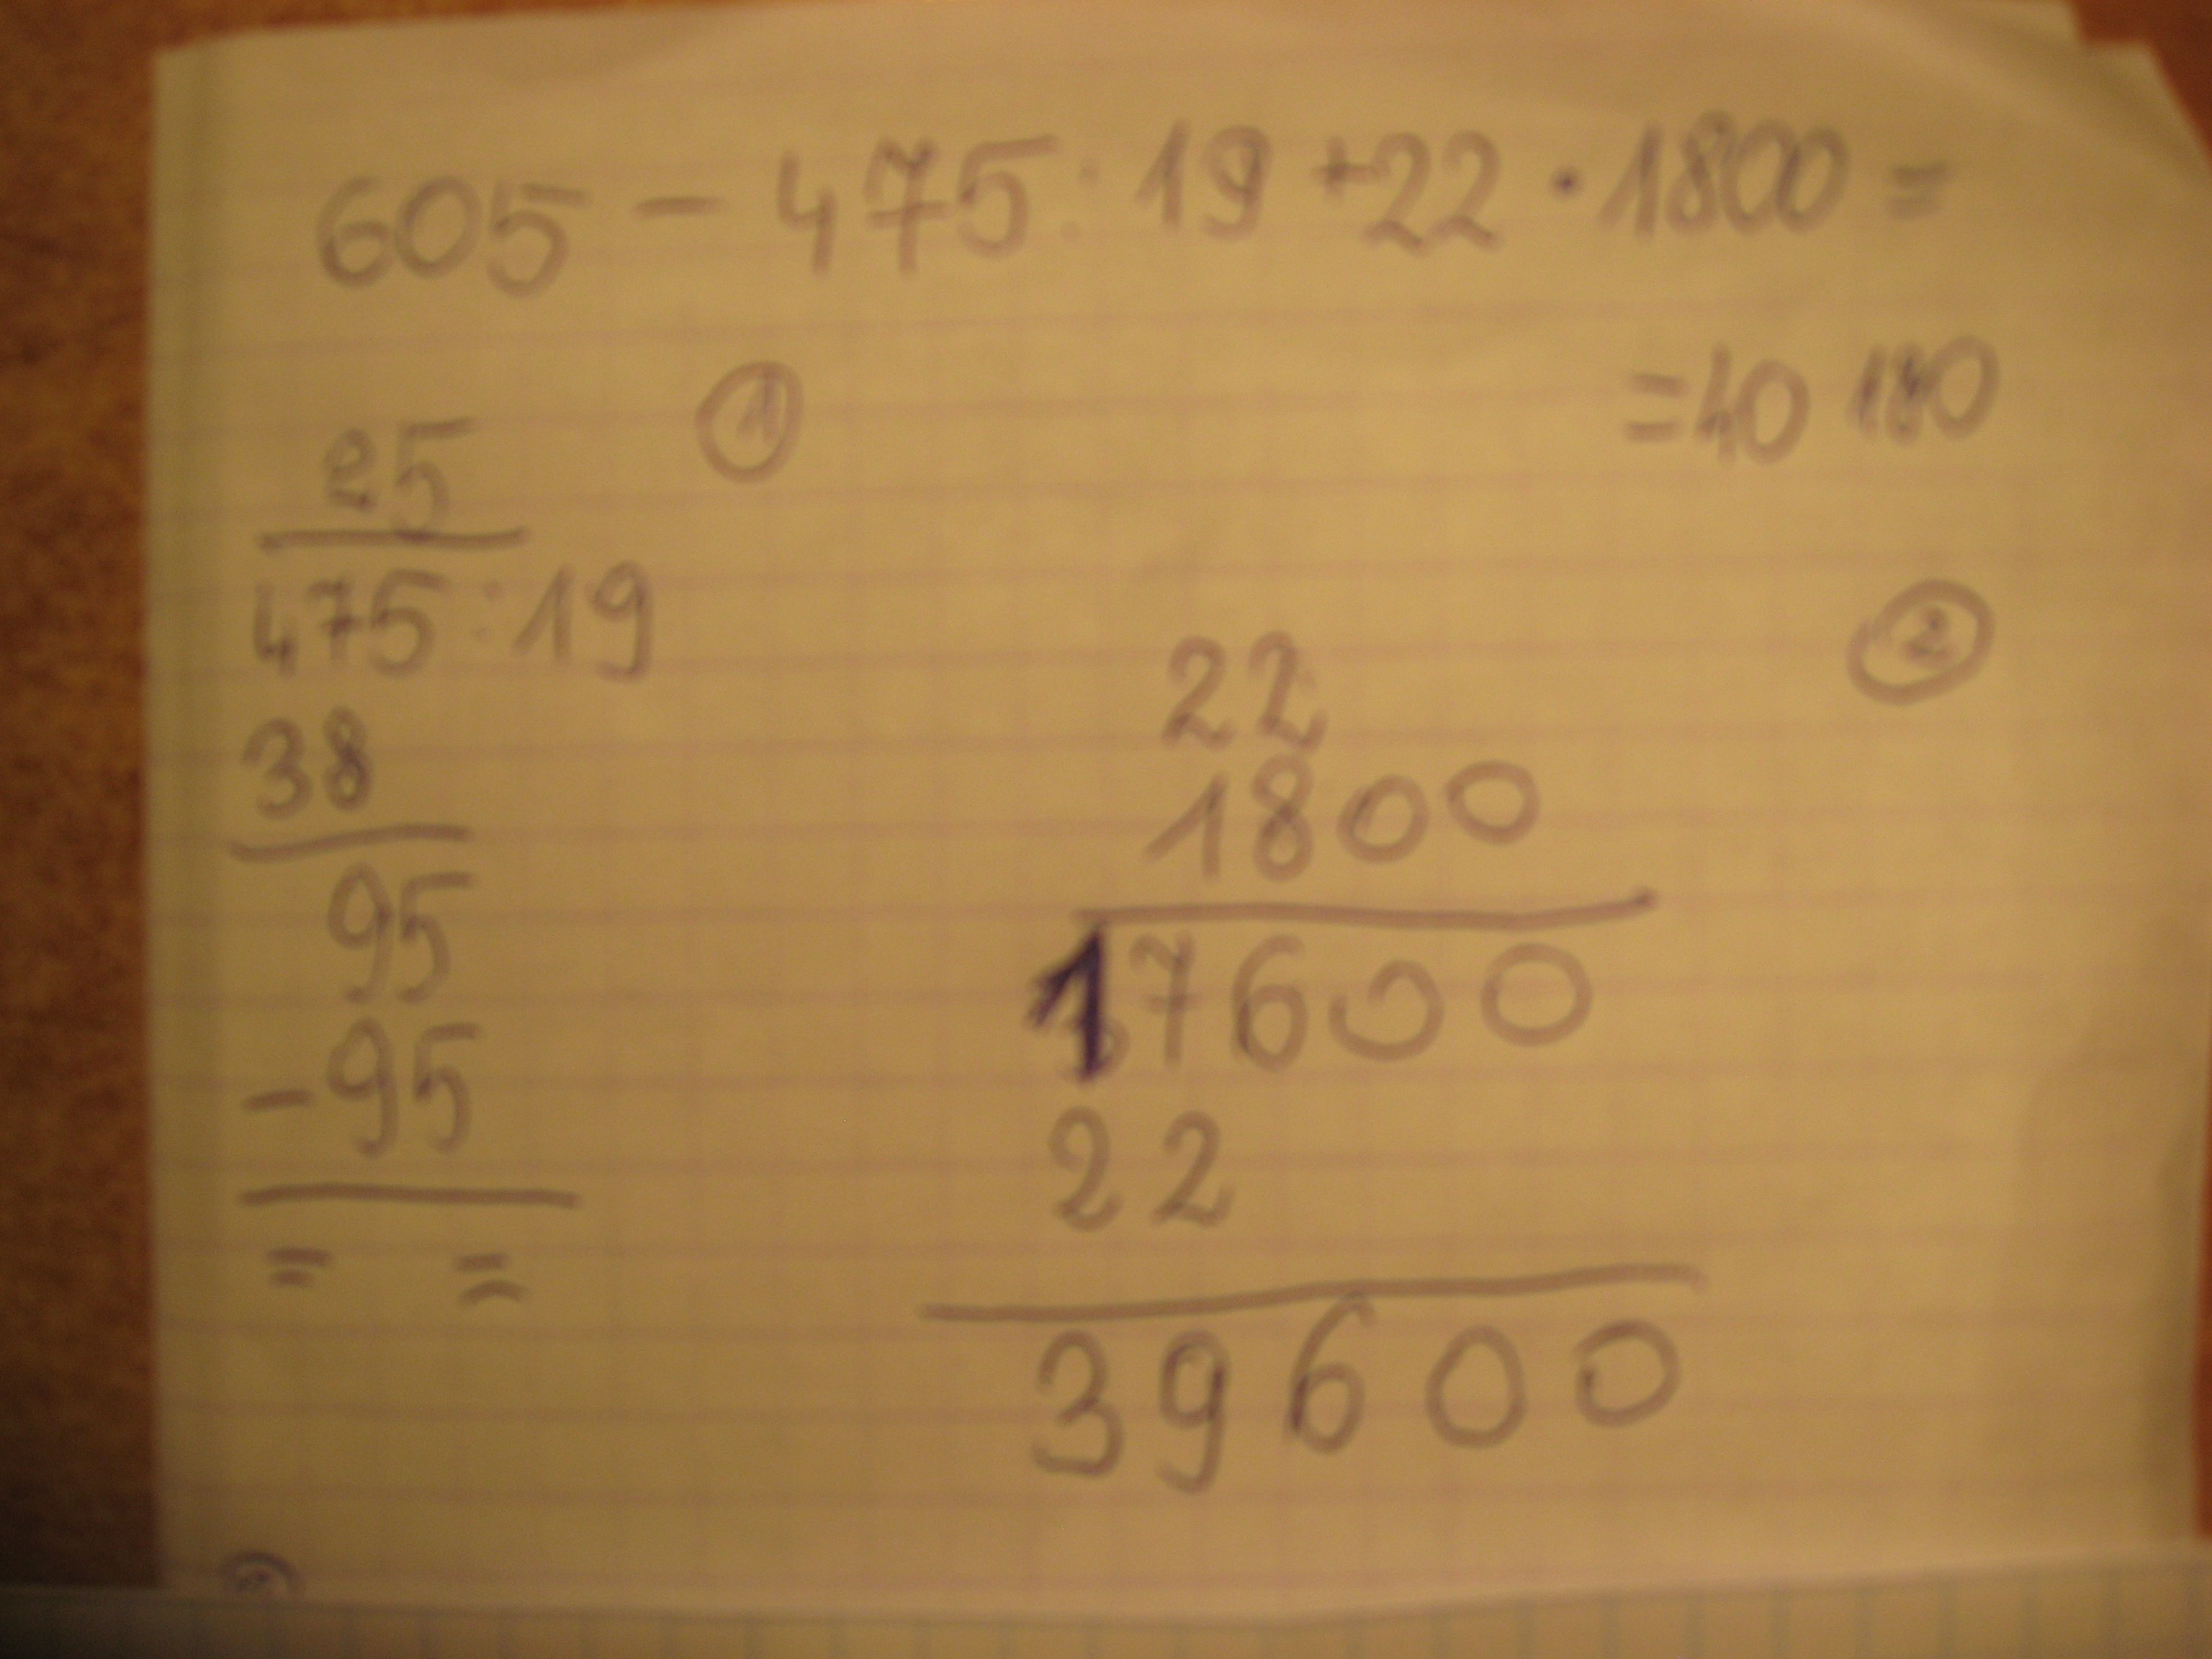 605 - 475 : 19 + 22 · 1800 =
= 40 180
①
25
475 : 19
38
95
- 95
= =
②
22
1800
17600
22
39600